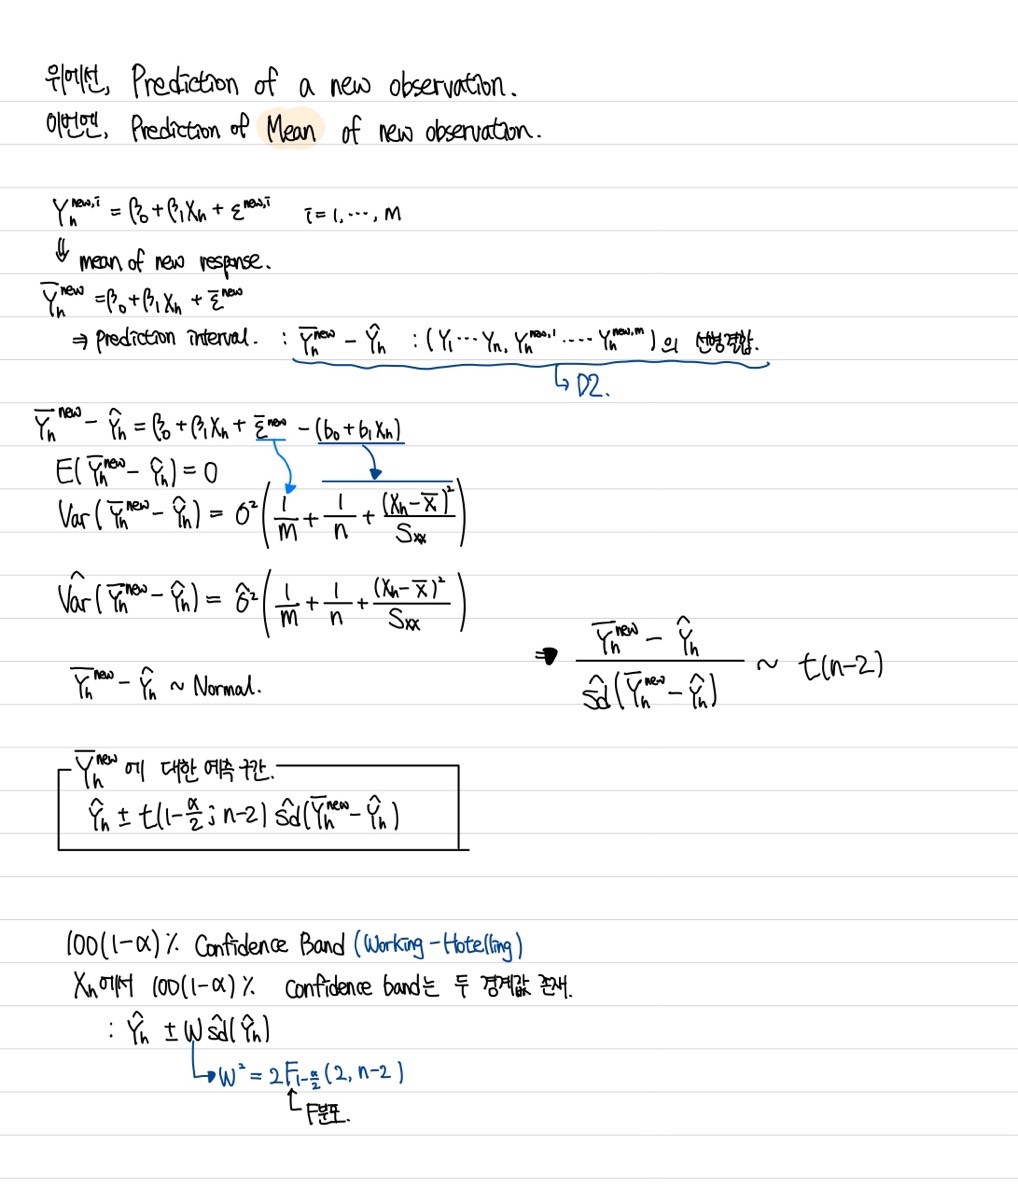 위에선, Prediction of a new observation.
이번엔, Prediction of Mean of new observation.
Yₕⁿᵉʷ,ⁱ = β₀ + β₁Xₕ + εⁿᵉʷ,ⁱ i = 1, ⋯, m
⇓ mean of new response.
Ȳₕⁿᵉʷ = β₀ + β₁Xₕ + ε̄ⁿᵉʷ
⇒ prediction interval. : Ȳₕⁿᵉʷ − Ŷₕ : (Y₁ ⋯ Yₙ, Yₕⁿᵉʷ,¹ ⋯⋅ Yₕⁿᵉʷ,ᵐ) 의 선형결합.
↳ D2.
Ȳₕⁿᵉʷ − Ŷₕ = β₀ + β₁Xₕ + ε̄ⁿᵉʷ − (b₀ + b₁Xₕ)
E(Ȳₕⁿᵉʷ − Ŷₕ) = 0
Var(Ȳₕⁿᵉʷ − Ŷₕ) = σ²(1/m + 1/n + (Xₕ − X̄)²/Sxx)
V̂ar(Ȳₕⁿᵉʷ − Ŷₕ) = σ̂²(1/m + 1/n + (Xₕ − X̄)²/Sxx)
Ȳₕⁿᵉʷ − Ŷₕ ~ Normal.
⇒ (Ȳₕⁿᵉʷ − Ŷₕ)/ŝd(Ȳₕⁿᵉʷ − Ŷₕ) ~ t(n−2)
Ȳₕⁿᵉʷ 에 대한 예측 구간.
Ŷₕ ± t(1−α/2 ; n−2) ŝd(Ȳₕⁿᵉʷ − Ŷₕ)
100(1−α)% Confidence Band (Working-Hotelling)
Xₕ에서 100(1−α)% confidence band는 두 경계값 존재.
: Ŷₕ ± W ŝd(Ŷₕ)
↳ W² = 2F₁₋α/₂(2, n−2)
F분포.